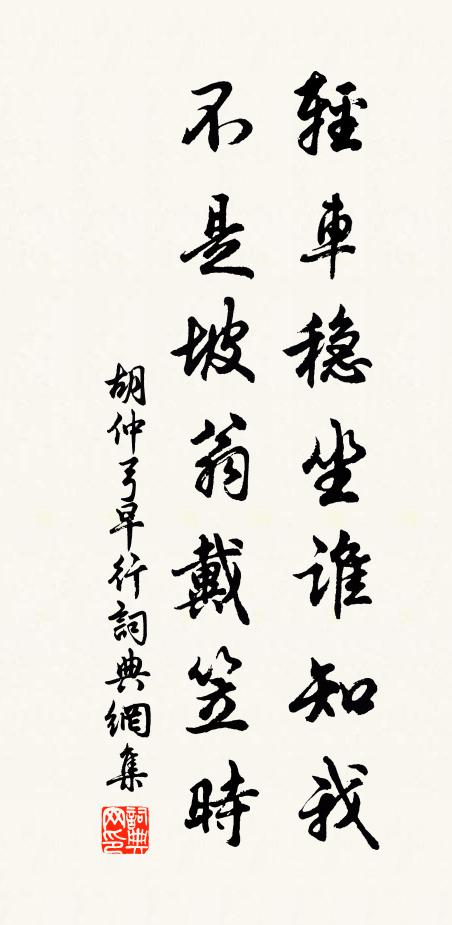 輕車穏坐誰知我
不是坡翁戴笠時
胡仲弓早行詞典網集
詞典网印